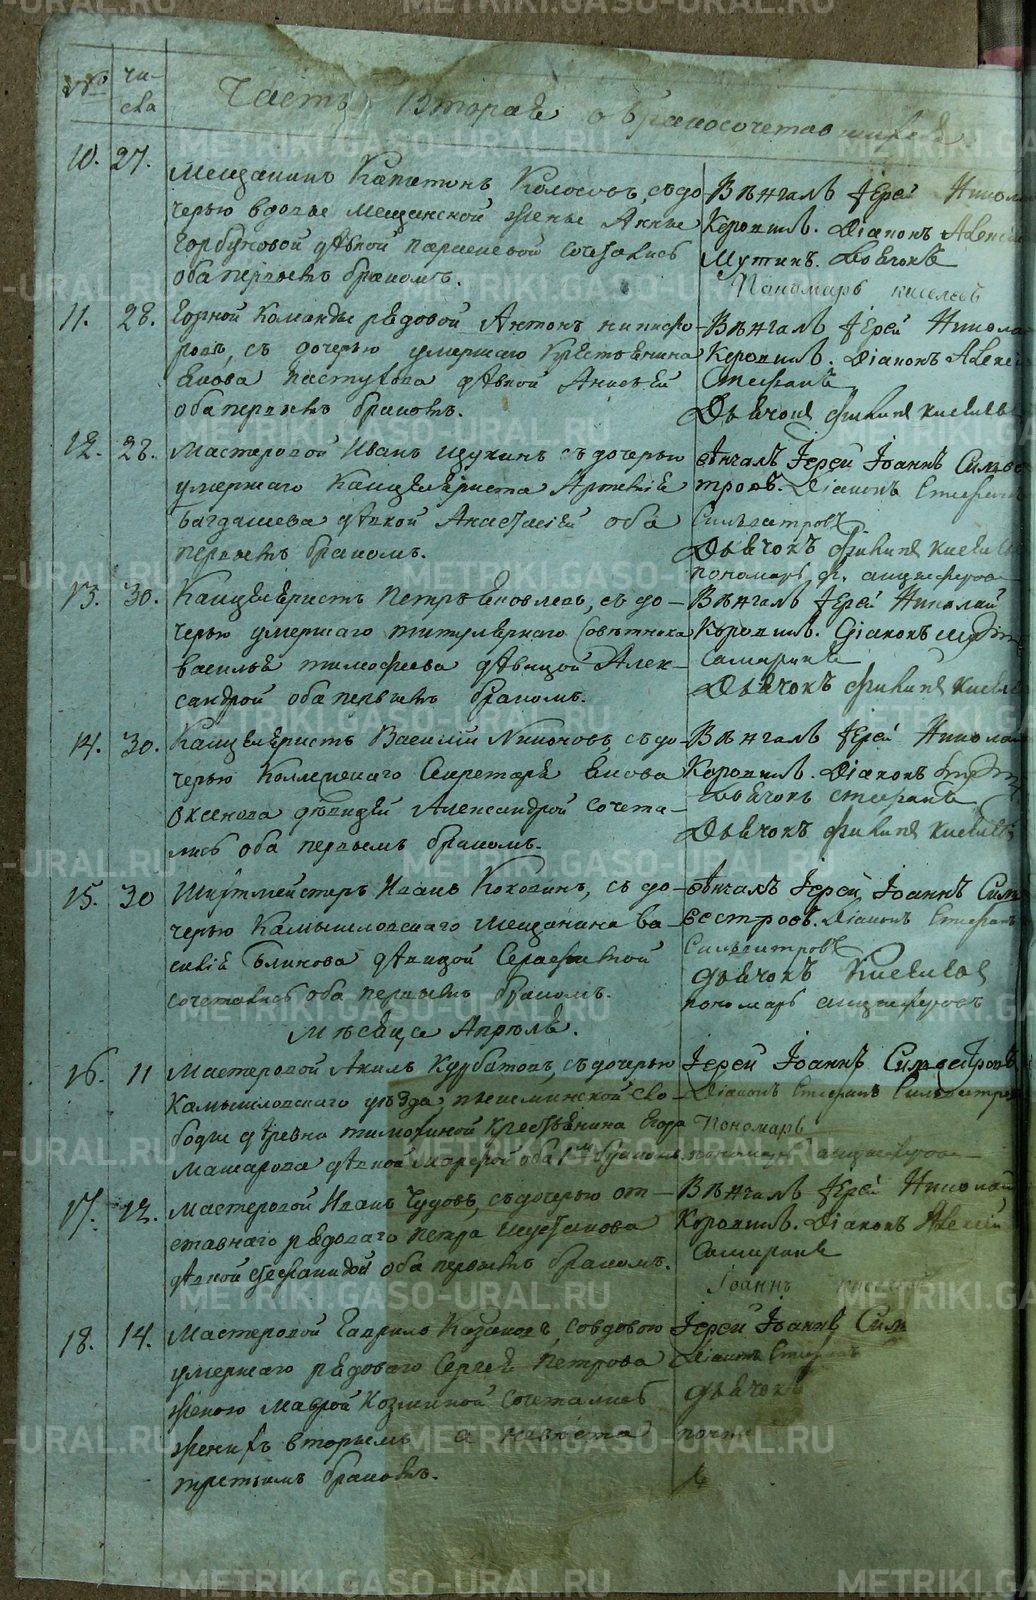 METRIKI.GASO-URAL.RU
№ чи-
сла
Часть Вторая о бракосочетавшихся
10. 27. Мещанинъ Капитонъ Колосовъ, съ до
черью вдовы мещанской жены Анны
Горбуновой дѣвкой сочетались
оба первымъ бракомъ.
Вѣнчалъ Іерей Никола
Коровинъ. Діаконъ Алексѣй
Мутинъ. Дьячокъ
Пономарь киселевъ
11. 28. Горной Команды рядовой Антонъ никифо
ровъ, съ дочерью умершаго Крестьянина
Якова Пастухова дѣвкой
оба первымъ бракомъ.
Вѣнчалъ Іерей Никола
Коровинъ. Діаконъ Алексѣй
Стефанъ
Дьячокъ филипъ киселевъ
12. 28. Мастеровой Иванъ щукинъ съ дочерью
умершаго Канцеляриста
Багдашева дѣвкой Анастасіей оба
первымъ бракомъ.
вѣнчалъ Іерей Іоаннъ Сильве
стровъ. Діаконъ Стефанъ
Сильвестровъ
Дьячокъ филипъ киселевъ
пономарь анциферовъ
13. 30. Канцеляристъ Петръ Яковлевъ, съ до-
черью умершаго титулярнаго Совѣтника
василья тимофеева дѣвицой Алек-
сандрой оба первымъ бракомъ.
Вѣнчалъ Іерей Николай
Коровинъ. Діаконъ
Самаринъ
Дьячокъ филипъ киселевъ
14. 30. Канцеляристъ Василій Никоновъ, съ до-
черью Коллежскаго Секретаря Якова
Оксенова дѣвицей Александрой сочета-
лись оба первымъ бракомъ.
Вѣнчалъ Іерей Никола
Коровинъ. Діаконъ
Дьячокъ стефанъ
Дьячокъ филипъ киселевъ
15. 30 Шихтмейстеръ Иванъ Коковинъ, съ до-
черью Камышловскаго Мещанина ва-
силія Блинова дѣвицой Серафимой
сочетались оба первымъ бракомъ.
вѣнчалъ Іерей Іоаннъ Силь
вестровъ. Діаконъ Стефанъ
Сильвестровъ
дьячокъ Киселевъ
пономарь анциферовъ
Мѣсяца Апрѣля.
16. 11 Мастеровой Акимъ Курбатовъ, съ дочерью
Камышловскаго уѣзда, пышминской Сло-
боды деревни тимохиной Крестьянина Егора
Машарова дѣвкой Марфой оба 1м бракомъ.
Іерей Іоаннъ Сильвестровъ
Діаконъ Стефанъ Сильвестровъ
Пономарь
пономарь анциферовъ
17. 12. Мастеровой Иванъ Чудовъ, съ дочерью от-
ставнаго рядоваго Петра Шустикова
дѣвкой Стефанидой оба первымъ бракомъ.
Вѣнчалъ Іерей Николай
Коровинъ. Діаконъ Алексій
Самаринъ
Іоаннъ
18. 14. Мастеровой Гаврило Казаковъ, со вдовою
умершаго рядоваго Сергея Петрова
женою Маврой Козминой сочетались
женихъ вторымъ а невѣста
третьимъ бракомъ.
Іерей Іоаннъ Сил
Діаконъ Стефанъ
дьячокъ